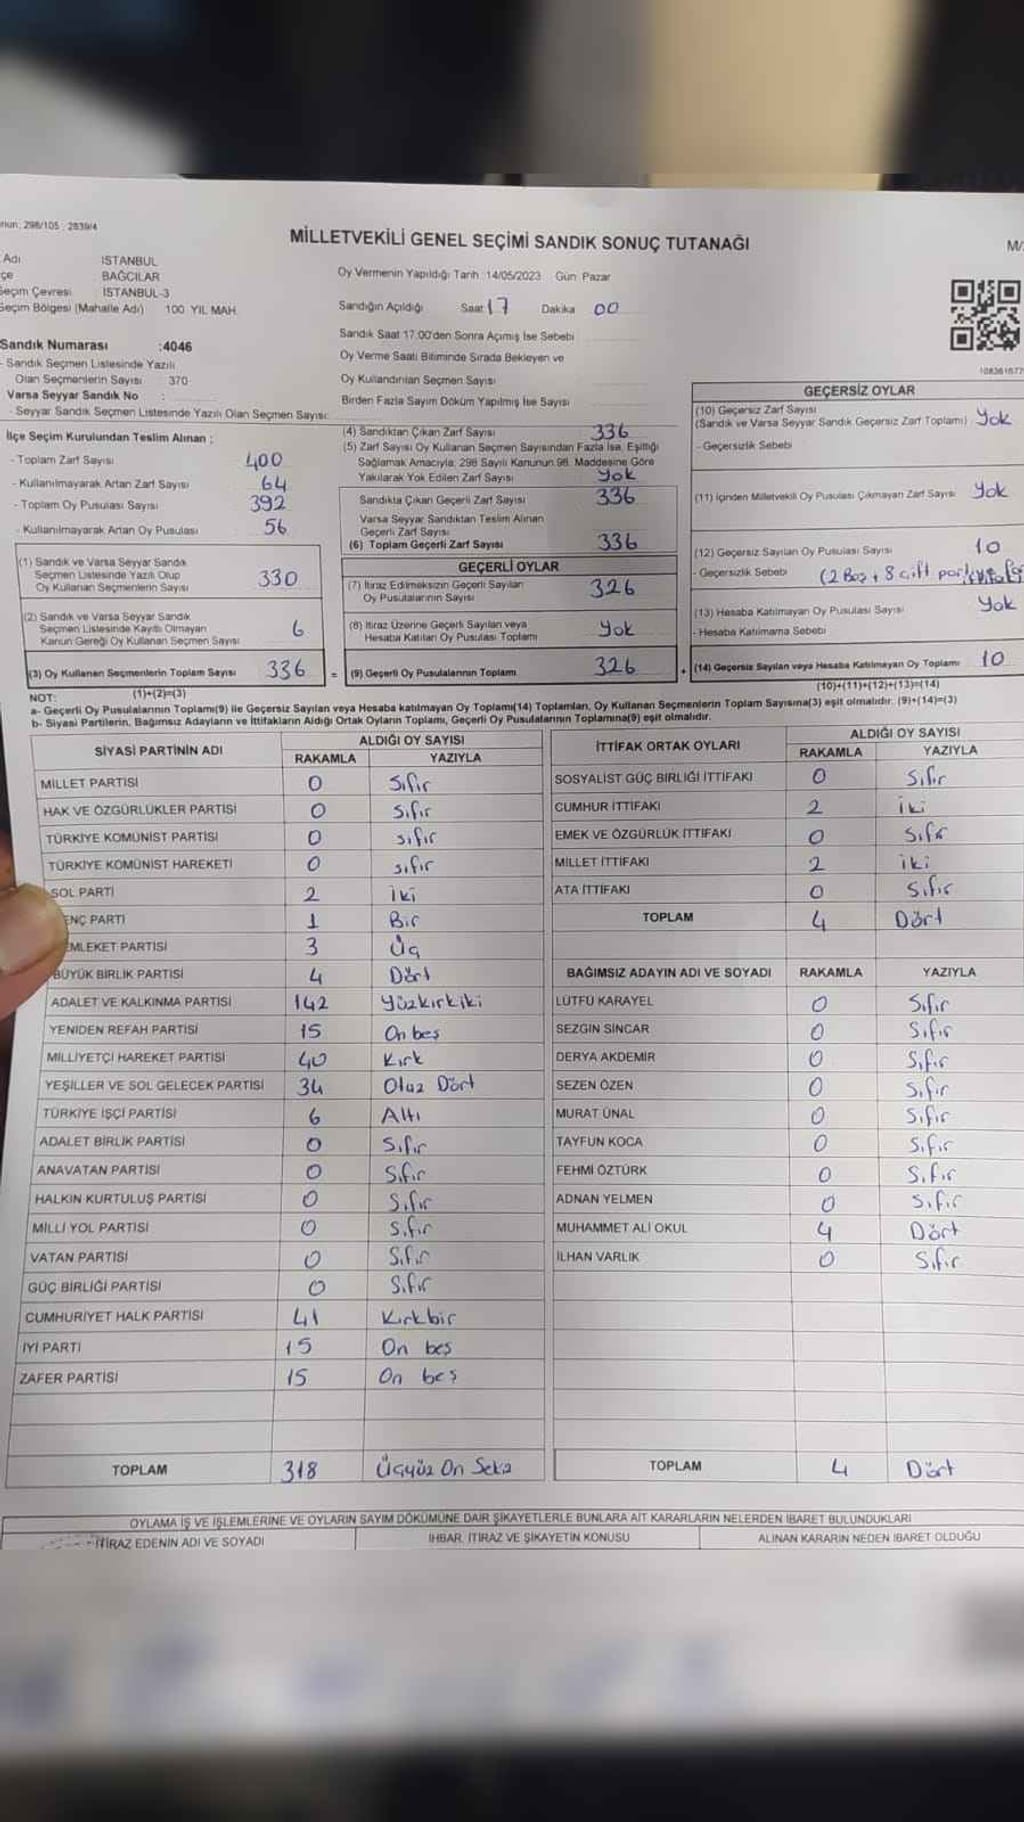 298/105 2839/4
MİLLETVEKİLİ GENEL SEÇİMİ SANDIK SONUÇ TUTANAĞI
M/
Adı İSTANBUL
çe BAĞCILAR
Seçim Çevresi İSTANBUL-3
Seçim Bölgesi (Mahalle Adı) 100 YIL MAH.
Oy Vermenin Yapıldığı Tarih 14/05/2023 Gün Pazar
Sandığın Açıldığı Saat 17 Dakika 00
Sandık Saat 17:00'den Sonra Açımış İse Sebebi
Oy Verme Saati Bitiminde Sırada Bekleyen ve
Oy Kullandırılan Seçmen Sayısı
Birden Fazla Sayım Döküm Yapılmış İse Sayısı
Sandık Numarası :4046
- Sandık Seçmen Listesinde Yazılı
Olan Seçmenlerin Sayısı 370
Varsa Seyyar Sandık No :
- Seyyar Sandık Seçmen Listesinde Yazılı Olan Seçmen Sayısı:
İlçe Seçim Kurulundan Teslim Alınan ;
- Toplam Zarf Sayısı 400
- Kullanılmayarak Artan Zarf Sayısı 64
- Toplam Oy Pusulası Sayısı 392
- Kullanılmayarak Artan Oy Pusulası 56
(1) Sandık ve Varsa Seyyar Sandık
Seçmen Listesinde Yazılı Olup
Oy Kullanan Seçmenlerin Sayısı 330
(2) Sandık ve Varsa Seyyar Sandık
Seçmen Listesinde Kayıtlı Olmayan
Kanun Gereği Oy Kullanan Seçmen Sayısı 6
(3) Oy Kullanan Seçmenlerin Toplam Sayısı 336
(1)+(2)=(3)
(4) Sandıktan Çıkan Zarf Sayısı 336
(5) Zarf Sayısı Oy Kullanan Seçmen Sayısından Fazla İse, Eşitliği
Sağlamak Amacıyla; 298 Sayılı Kanunun 98. Maddesine Göre
Yakılarak Yok Edilen Zarf Sayısı Yok
Sandıkta Çıkan Geçerli Zarf Sayısı 336
Varsa Seyyar Sandıktan Teslim Alınan
Geçerli Zarf Sayısı
(6) Toplam Geçerli Zarf Sayısı 336
GEÇERLİ OYLAR
(7) İtiraz Edilmeksizin Geçerli Sayılan
Oy Pusulalarının Sayısı 326
(8) İtiraz Üzerine Geçerli Sayılan veya
Hesaba Katılan Oy Pusulası Toplamı Yok
= (9) Geçerli Oy Pusulalarının Toplamı 326 +
GEÇERSİZ OYLAR
(10) Geçersiz Zarf Sayısı
(Sandık ve Varsa Seyyar Sandık Geçersiz Zarf Toplamı) Yok
- Geçersizlik Sebebi
(11) İçinden Milletvekili Oy Pusulası Çıkmayan Zarf Sayısı Yok
(12) Geçersiz Sayılan Oy Pusulası Sayısı 10
- Geçersizlik Sebebi (2 Boş + 8 çift
(13) Hesaba Katılmayan Oy Pusulası Sayısı Yok
- Hesaba Katılmama Sebebi
(14) Geçersiz Sayılan veya Hesaba Katılmayan Oy Toplamı 10
(10)+(11)+(12)+(13)=(14)
NOT:
a- Geçerli Oy Pusulalarının Toplamı(9) ile Geçersiz Sayılan veya Hesaba katılmayan Oy Toplamı(14) Toplamları, Oy Kullanan Seçmenlerin Toplam Sayısına(3) eşit olmalıdır. (9)+(14)=(3)
b- Siyasi Partilerin, Bağımsız Adayların ve İttifakların Aldığı Ortak Oyların Toplamı, Geçerli Oy Pusulalarının Toplamına(9) eşit olmalıdır.
SİYASİ PARTİNİN ADI ALDIĞI OY SAYISI
RAKAMLA YAZIYLA
MİLLET PARTİSİ 0 Sıfır
HAK VE ÖZGÜRLÜKLER PARTİSİ 0 Sıfır
TÜRKİYE KOMÜNİST PARTİSİ 0 sıfır
TÜRKİYE KOMÜNİST HAREKETİ 0 sıfır
SOL PARTİ 2 İki
ENÇ PARTİ 1 Bir
EMLEKET PARTİSİ 3 Üç
BÜYÜK BİRLİK PARTİSİ 4 Dört
ADALET VE KALKINMA PARTİSİ 142 Yüzkırkiki
YENİDEN REFAH PARTİSİ 15 On beş
MİLLİYETÇİ HAREKET PARTİSİ 40 Kırk
YEŞİLLER VE SOL GELECEK PARTİSİ 34 Otuz Dört
TÜRKİYE İŞÇİ PARTİSİ 6 Altı
ADALET BİRLİK PARTİSİ 0 Sıfır
ANAVATAN PARTİSİ 0 Sıfır
HALKIN KURTULUŞ PARTİSİ 0 Sıfır
MİLLİ YOL PARTİSİ 0 Sıfır
VATAN PARTİSİ 0 Sıfır
GÜÇ BİRLİĞİ PARTİSİ 0 Sıfır
CUMHURİYET HALK PARTİSİ 41 Kırkbir
İYİ PARTİ 15 On beş
ZAFER PARTİSİ 15 On beş
TOPLAM 318 Üçyüz On Sekiz
İTTİFAK ORTAK OYLARI ALDIĞI OY SAYISI
RAKAMLA YAZIYLA
SOSYALİST GÜÇ BİRLİĞİ İTTİFAKI 0 Sıfır
CUMHUR İTTİFAKI 2 İki
EMEK VE ÖZGÜRLÜK İTTİFAKI 0 Sıfır
MİLLET İTTİFAKI 2 İki
ATA İTTİFAKI 0 Sıfır
TOPLAM 4 Dört
BAĞIMSIZ ADAYIN ADI VE SOYADI RAKAMLA YAZIYLA
LÜTFÜ KARAYEL 0 Sıfır
SEZGİN SİNCAR 0 Sıfır
DERYA AKDEMİR 0 Sıfır
SEZEN ÖZEN 0 Sıfır
MURAT ÜNAL 0 Sıfır
TAYFUN KOCA 0 Sıfır
FEHMİ ÖZTÜRK 0 Sıfır
ADNAN YELMEN 0 Sıfır
MUHAMMET ALİ OKUL 4 Dört
İLHAN VARLIK 0 Sıfır
TOPLAM 4 Dört
OYLAMA İŞ VE İŞLEMLERİNE VE OYLARIN SAYIM DÖKÜMÜNE DAİR ŞİKAYETLERLE BUNLARA AİT KARARLARIN NELERDEN İBARET BULUNDUKLARI
İTİRAZ EDENİN ADI VE SOYADI İHBAR, İTİRAZ VE ŞİKAYETİN KONUSU ALINAN KARARIN NEDEN İBARET OLDUĞU